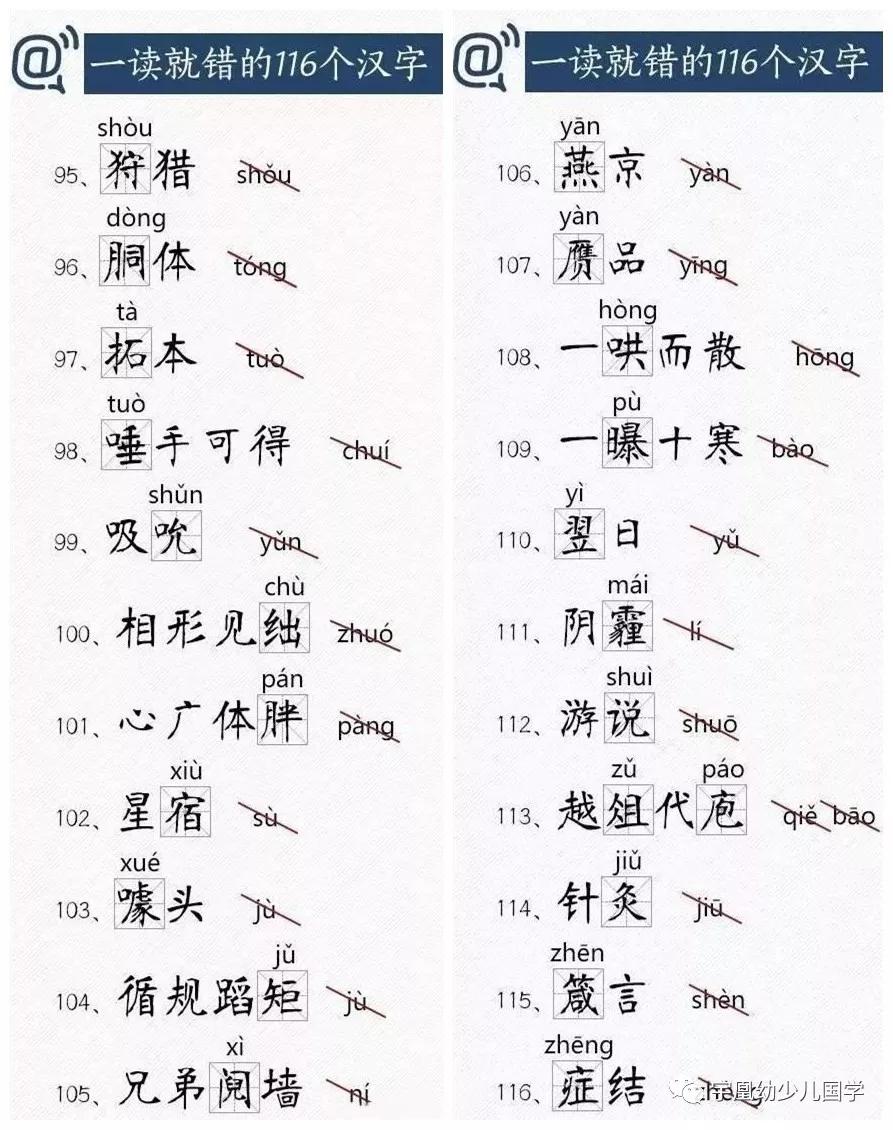 一读就错的116个汉字
shòu
95、狩猎 shǒu
dòng
96、胴体 tóng
tà
97、拓本 tuò
tuò
98、唾手可得 chuí
shǔn
99、吸吮 yǔn
chù
100、相形见绌 zhuó
pán
101、心广体胖 pàng
xiù
102、星宿 sù
xué
103、噱头 jù
jǔ
104、循规蹈矩 jù
xì
105、兄弟阋墙 ní
一读就错的116个汉字
yān
106、燕京 yàn
yàn
107、赝品 yīng
hòng
108、一哄而散 hōng
pù
109、一曝十寒 bào
yì
110、翌日 yǔ
mái
111、阴霾 lí
shuì
112、游说 shuō
zǔ páo
113、越俎代庖 qiě bāo
jiǔ
114、针灸 jiū
zhēn
115、箴言 shèn
zhēng
116、症结
宇凰幼少儿国学